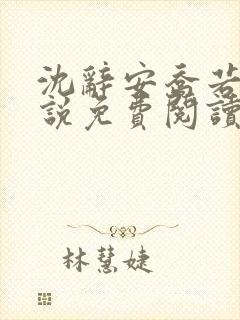 沈辭安喬若
說免費閱讀
林慧婕